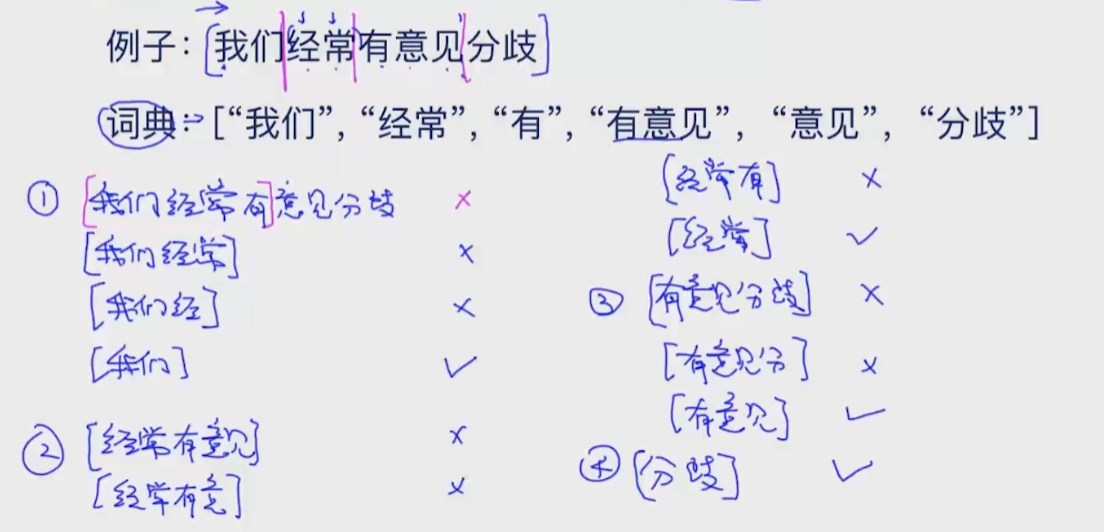 例子：[我们经常有意见分歧]
词典：[“我们”, “经常”, “有”, “有意见”, “意见”, “分歧”]
① [我们经常有]意见分歧 ×
[我们经常] ×
[我们经] ×
[我们] ✓
② [经常有意见] ×
[经常有意] ×
[经常有] ×
[经常] ✓
③ [有意见分歧] ×
[有意见分] ×
[有意见] ✓
④ [分歧] ✓